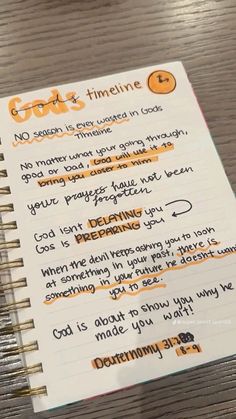 Gods timeline
NO season is ever wasted in Gods
Timeline
No matter what your going through,
good or bad, God will use it to
bring you closer to him
your prayers have not been
forgotten
God isnt DELAYING you
Gos is PREPARING you
When the devil keeps asking you to look
at something in your past, theres
something in your future he doesnt want
you to see.
God is about to show you why he
made you wait!
Deuteronomy 31:
8-9